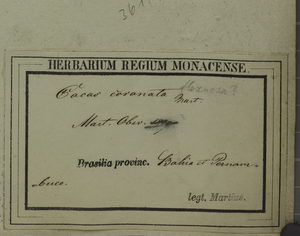 361
HERBARIUM REGIUM MONACENSE.
Cocos coronata Mart.
Mart. Obs.
Brasilia provinc. Bahia et Pernam-
buco.
legt. Martius.